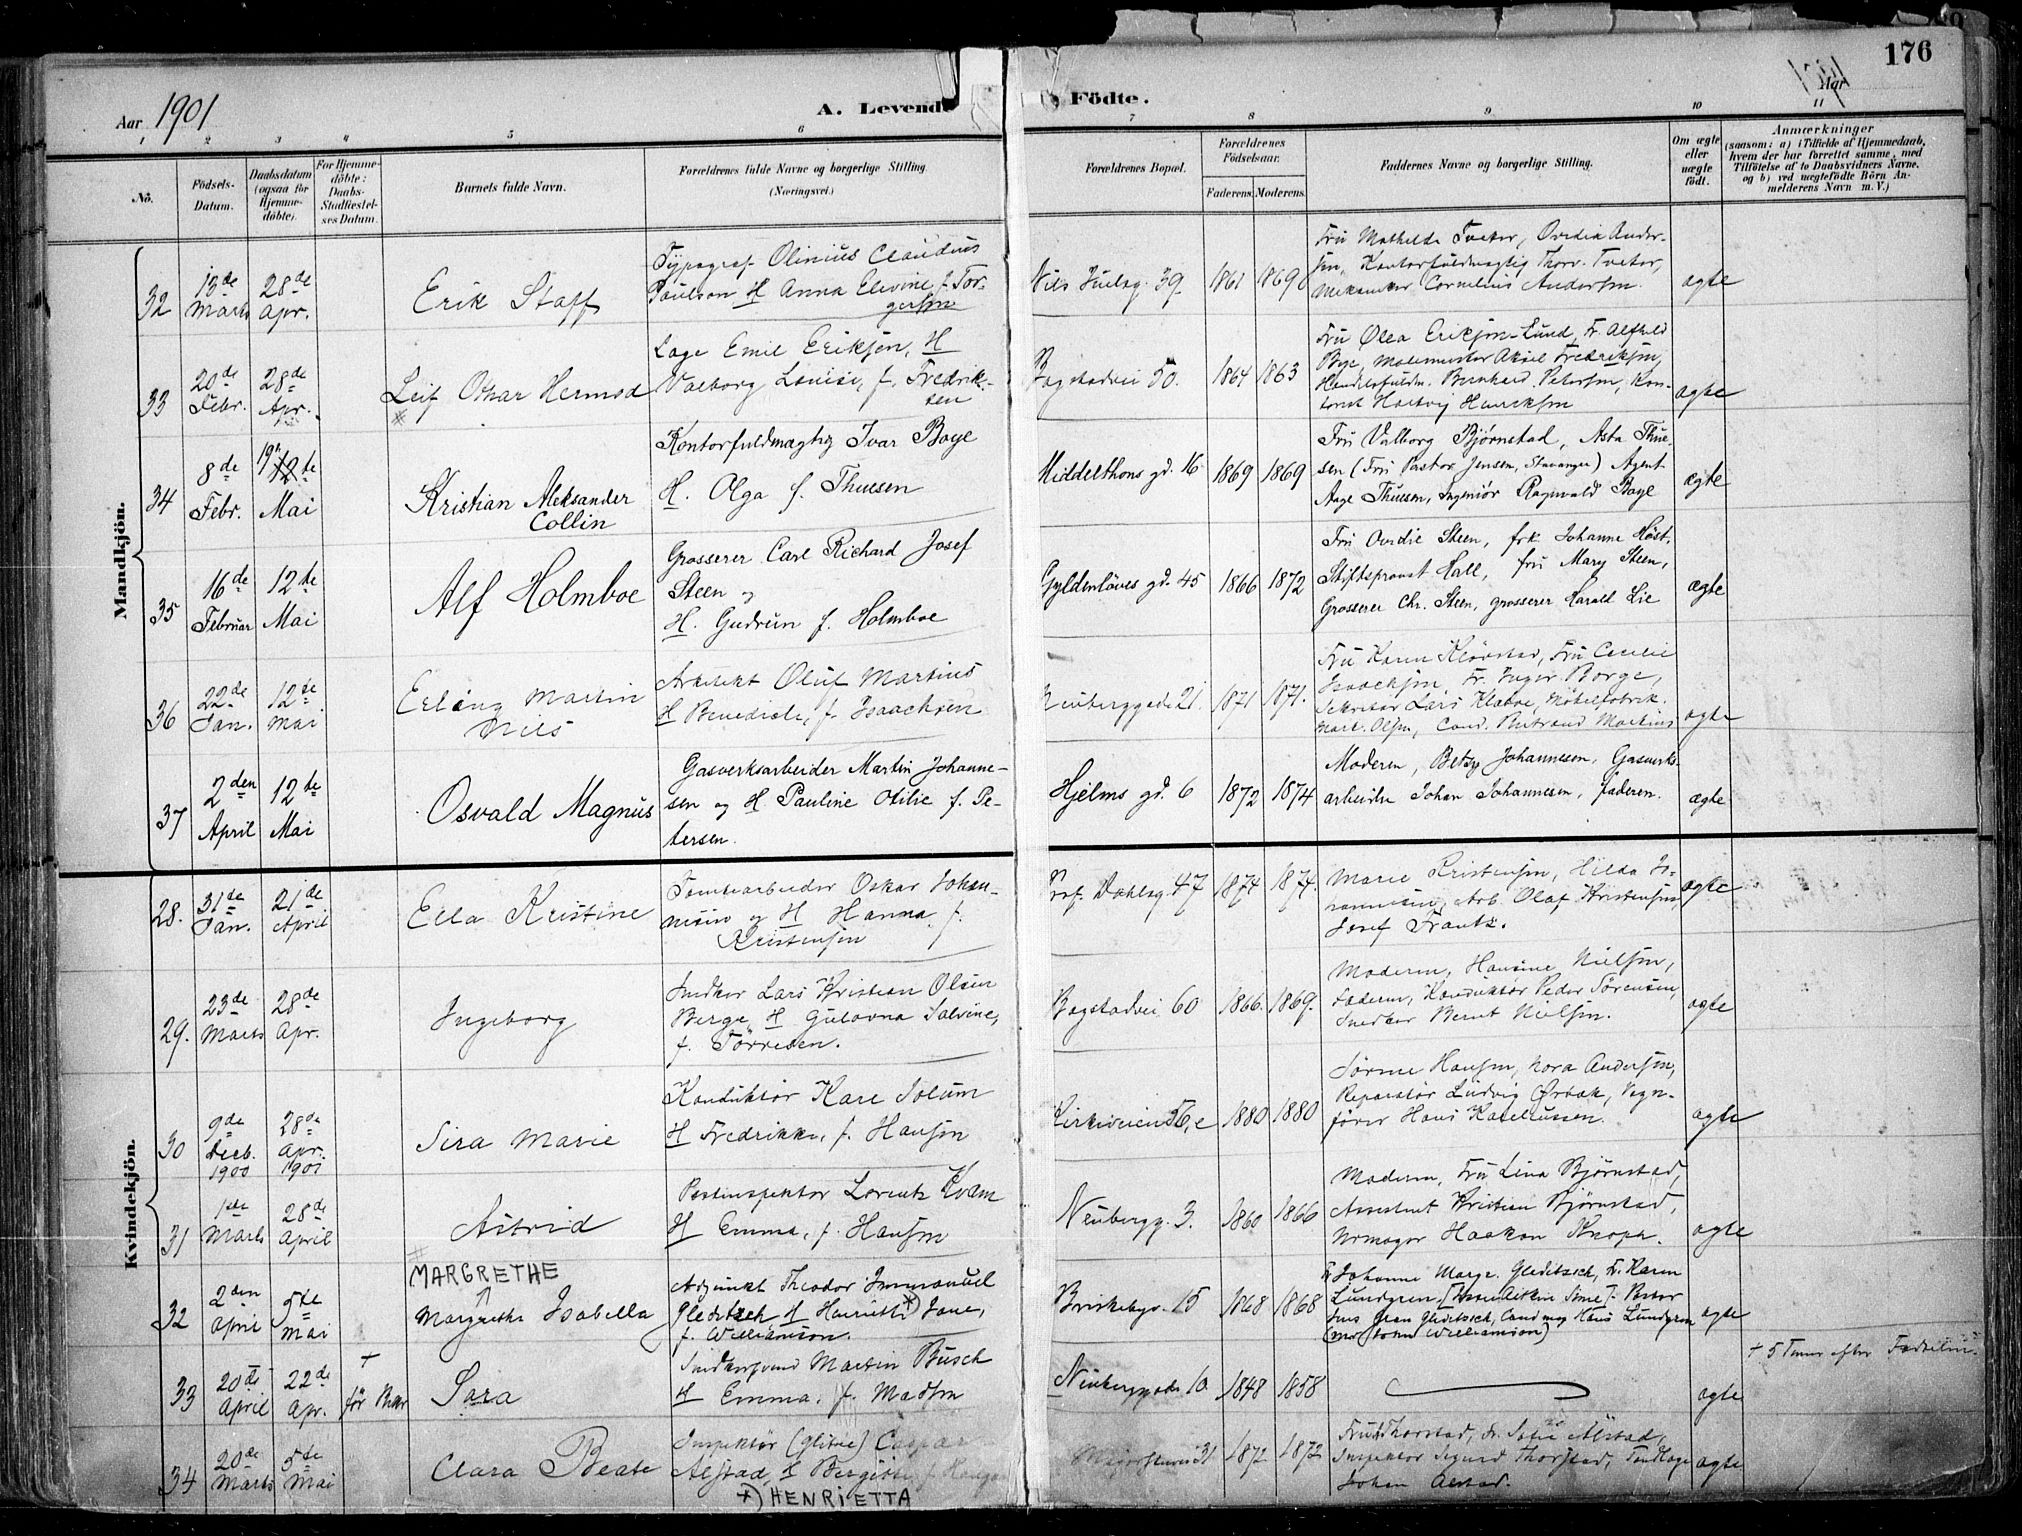 176
Aar 1901
A. Levende Födte.
Aar 1901
1 2 3 4 5 6 7 8 9 10 11
No.
Födsels-Datum.
Daabsdatum (ogsaa for Hjemme-döbte).
For Hjemme-döbte: Daabs-Stadfæstel-ses Datum.
Barnets fulde Navn.
Forældrenes fulde Navne og borgerlige Stilling (Næringsvei.)
Forældrenes Bopæl.
Forældrenes Födselsaar.
Faderens. Moderens.
Faddernes Navne og borgerlige Stilling.
Om ægte eller uægte født.
Anmærkninger
(saasom: a) i Tilfælde af Hjemmedaab, hvem der har forrettet samme, med Tilföielse af to Daabsvidners Navne. og b) ved uægtefödte Börn An-melderens Navn m. V.)
Mandkjön.
32 13de Marts 28de Apr. Erik Staff
Typograf Olinius Claudius
Paulson H Anna Elevine f. Tor-
gersen
Nils Juelsg. 39 1861 1869
Fru Mathilde Tveter, Ovedia Ander-
sen, Kontorfuldmægtig Thorv. Tveter,
Mekaniker Cornelius Andersen. ægte
33 20de Febr. 28de Apr. Leif Oskar Hermod
Lage Emil Eriksen, H
Valborg Louise, f. Fredrik-
sen
Bogstadvei 50. 1864 1863
Fru Olea Eriksen-Lund, Fr. Alfhild
Bye, Malermester Aksel Fredriksen,
Handelsfuldm. Bernhard Petersen, Kon-
torist Hartvig Henriksen ægte
34 8de Febr. 19de 12te Mai Kristian Aleksander
Collin
Kontorfuldmægtig Ivar Boye
H. Olga f. Thuesen
Middelthons gd. 16 1869 1869
Fru Valborg Bjørnstad, Asta Thue-
sen (Fru Pastor Jensen, Stavanger) Agent
Aage Thuesen, Ingeniør Ragnvald Boye ægte
35 16de Februar 12te Mai Alf Holmboe
Grosserer Carl Richard Josef
Steen og
H. Gudrun f. Holmboe
Gyldenløves gd. 45 1866 1872
Fru Ovedie Steen, frk Johanne Høst,
Stiftsprovst Hall, fru Mary Steen,
Grosserer Chr. Steen, grosserer Harald Lie ægte
36 22de Jan. 12te Mai Erling Martin
Nils
Arkitekt Oluf Martius
H Benedicte, f. Isaachsen
Neuberggade 21. 1871 1871.
Fru Karen Kløvstad, Fru Cecilie
Isaachsen, Fr. Inger Borge,
Sekretær Lars Klaboe, Møbelfabrik.
Mart. Olsen, Cand. Bertrand Martius ægte
37 2den April 12te Mai Osvald Magnus
Gasverksarbeider Martin Johanne-
sen og H Pauline Otilie f. Pe-
tersen.
Hjelms gd. 6 1872 1874
Moderen, Betzy Johannesen, Gasverks-
arbeider Johan Johannesen, faderen. ægte
Kvindekjön.
28. 31de Jan. 21de April Ella Kristine
Tomtearbeider Oskar Johan-
nesen og H Hanna f.
Kristensen
Prof. Dahlsg. 47 1874 1874.
Marie Kristensen, Hilda Jo-
hannesen, Arb. Olaf Kristensen,
Josef Frantz. ægte
29. 23de Marts 28de Apr. Ingeborg
Snedker Lars Kristian Olsen
Berge H Gulovna Salvine,
f. Törresen.
Bogstadvei 60 1866. 1869.
Moderen, Hansine Nielsen,
Faderen, Konduktør Peder Sørensen,
Snedker Bernt Nielsen. ægte
30 9de Decb. 1900 28de Apr. 1901 Sira Marie
Konduktör Karl Solum
H Fredrikke, f. Hansen
Kirkeveien 56,e 1880 1880
Sørine Hansen, Nora Andersen,
Reparatør Ludvig Ørbak, Vogn-
fører Hans Kasehussen. ægte
31 1ste Marts 28de April Astrid
Postinspektør Lorentz Kvam
H Emma, f. Hansen
Neubergg. 3. 1860 1866
Moderen, Fru Lina Bjørnstad,
Assistent Kristian Bjørnstad,
Urmager Haakon Knoph. ægte
32 2den April 5te Mai MARGRETHE
Margrethe Isabella
Adjunkt Theodor Immanuel
Gleditsch H Henriette +) Jane,
f. Williamson.
Briskebyv. 15 1868 1868
Fr Johanne Marge. Gleditsch, Fr. Karen
Lundgren,
Jens Gran Gleditsch, Cand mag Hans Lundgren
(Mr John Williamson) ægte
33 20de April 22de Apr. + för Bar Sara
Snedkersvend Martin Busch
H Emma, f. Madsen
Neuberggade 10 1848 1858 ægte
+ 5 Timer efter Fødselen.
34 20de Marts 5te Mai Clara Beate
Inspektör (Glitre) Caspar
Alstad, H Bergitte f. Haugen
Majorstuvei 31 1872 1872
Fru Thorstad, Fr. Sofie Alstad,
Inspektør Sigurd Thorstad, Tandlæge
Johan Alstad. ægte
+) HENRIETTA